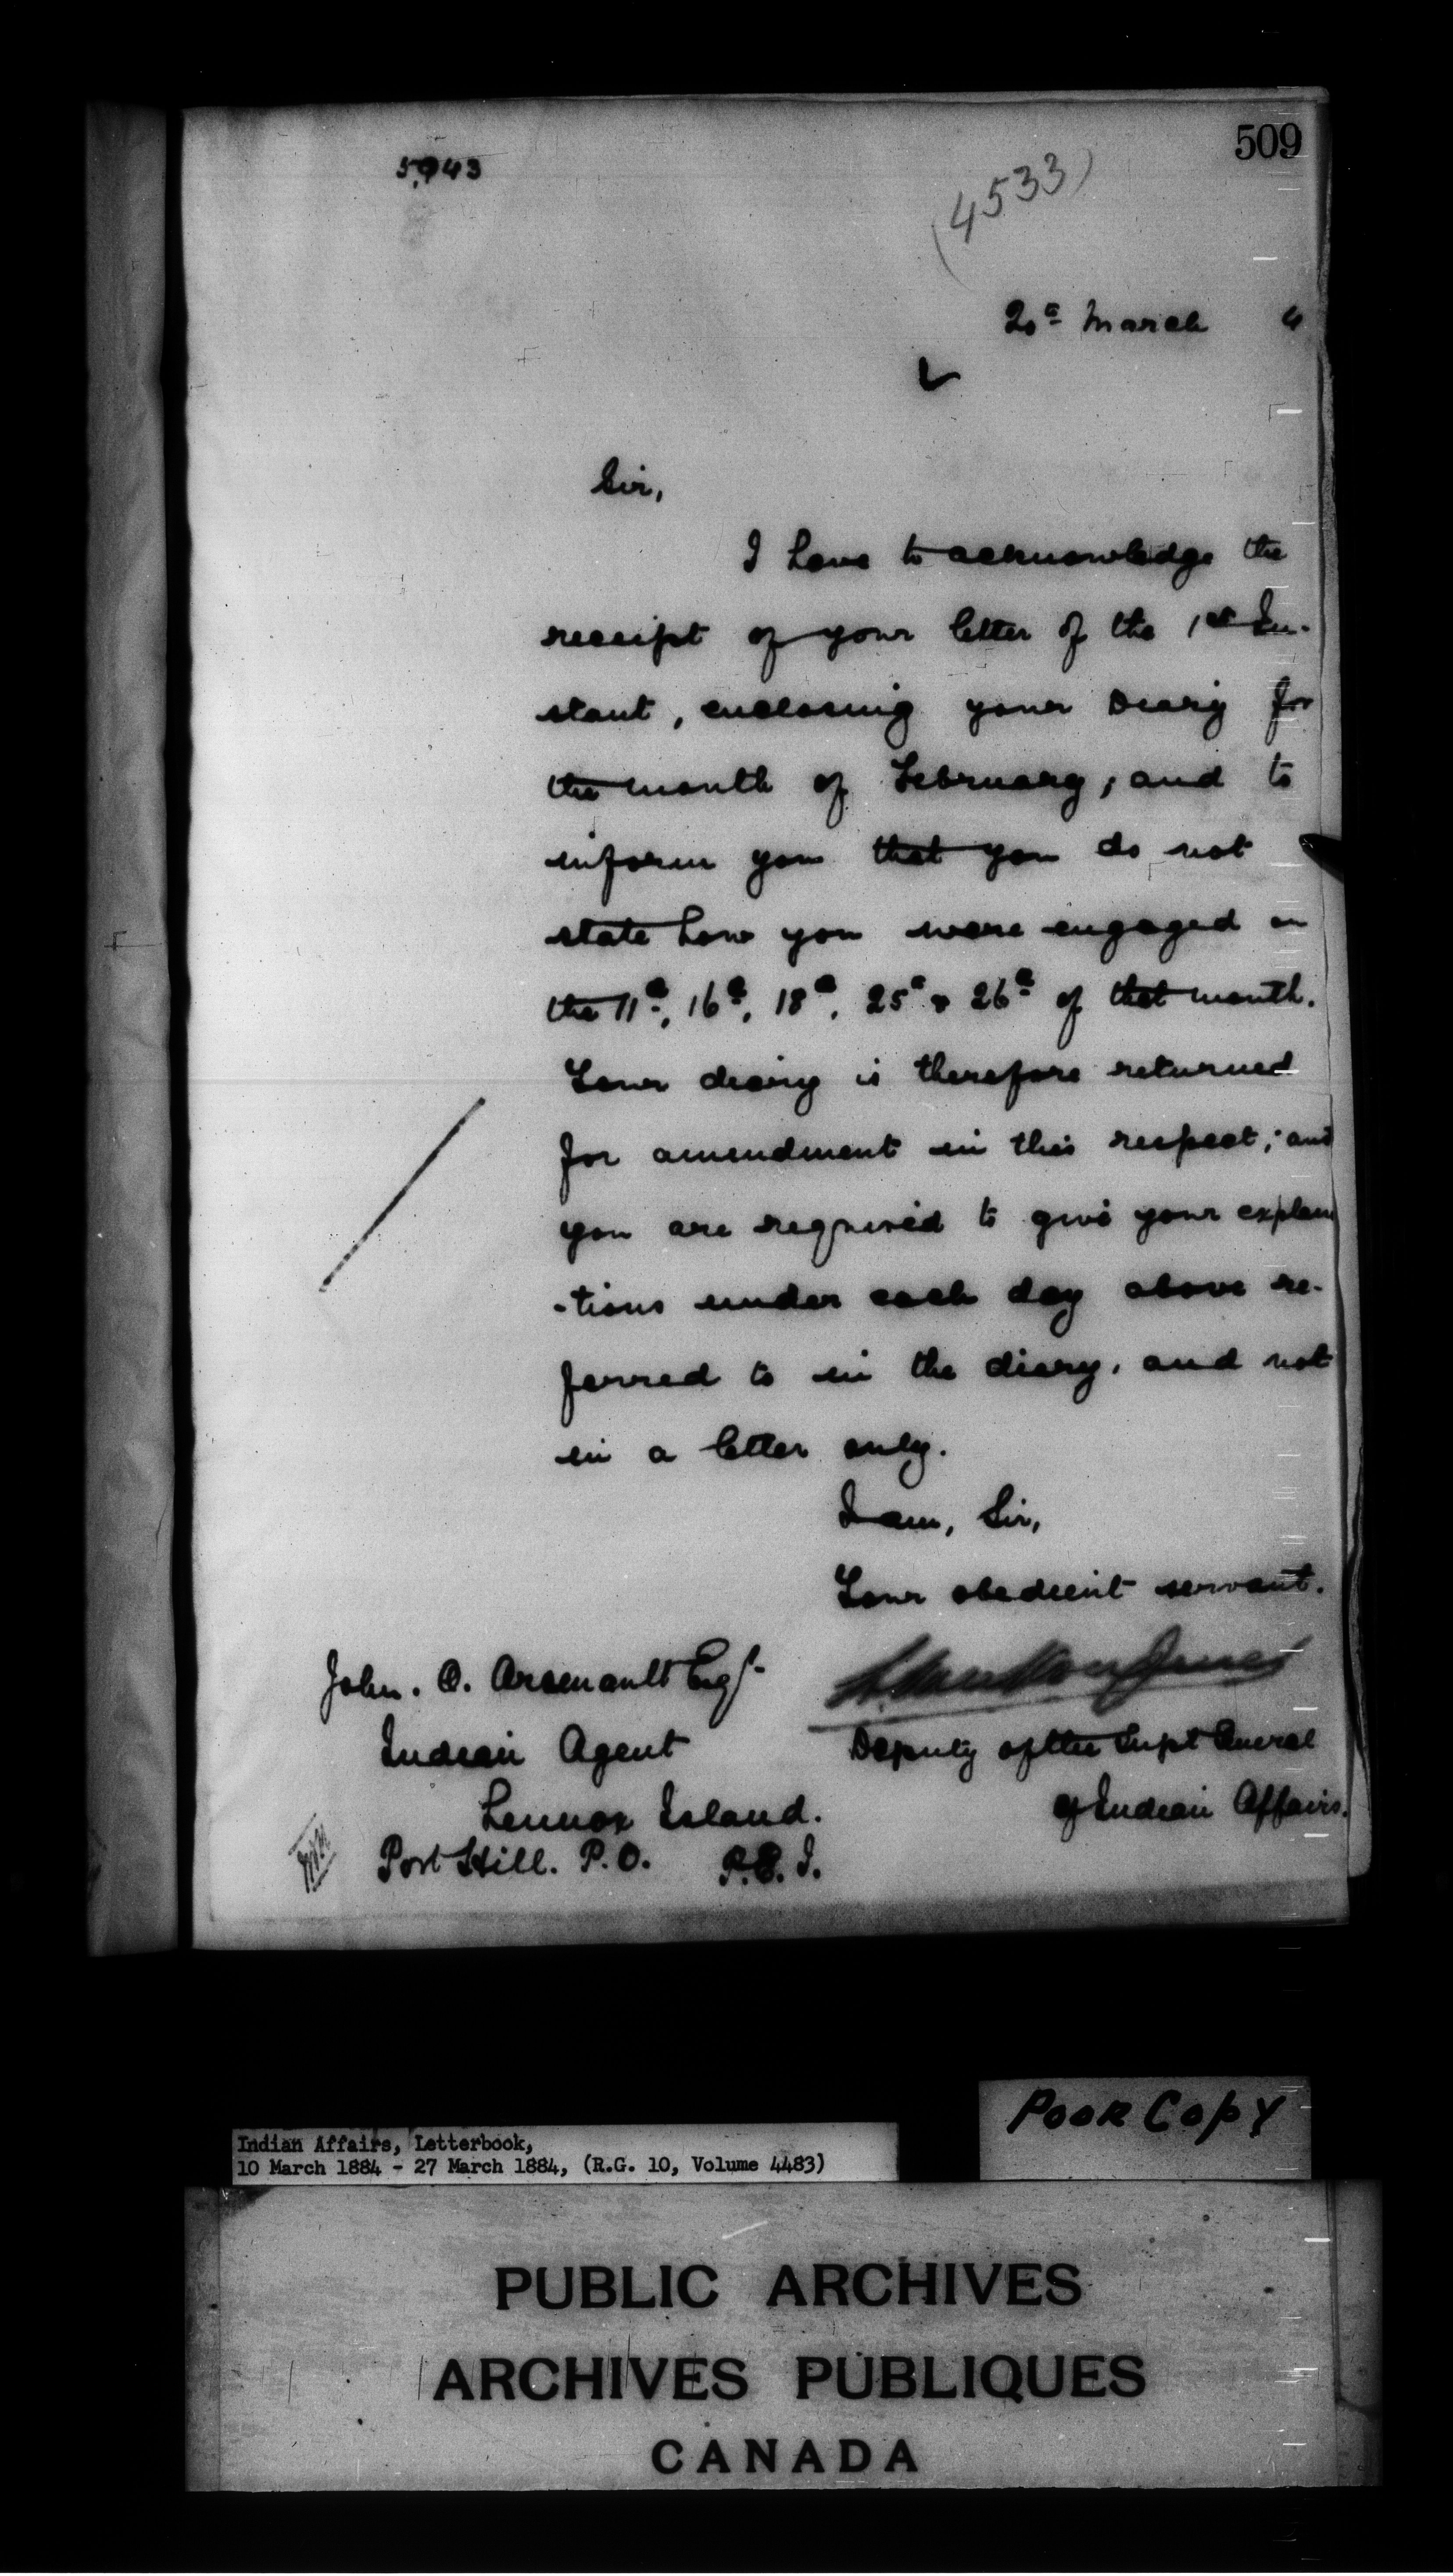 509
(4533)
20th March 4
Sir,
I have to acknowledge the
receipt of your letter of the 1st In-
stant, enclosing your Diary for
the month of February; and to
inform you that you do not
state how you were engaged on
the 11th, 16th, 18th, 25th & 26th of that month.
Your diary is therefore returned
for amendment in this respect; and
you are required to give your explana
-tions under each day above re-
ferred to in the diary, and not
in a letter only.
I am, Sir,
Your obedient servant.
John. O. Arsenault Esq.
Indian Agent
Lennox Island.
Port Hill. P.O. P.E.I.
Deputy of the Supt General
of Indian Affairs.
Poor Copy
Indian Affairs, Letterbook,
10 March 1884 - 27 March 1884, (R.G. 10, Volume 4483)
PUBLIC ARCHIVES
ARCHIVES PUBLIQUES
CANADA